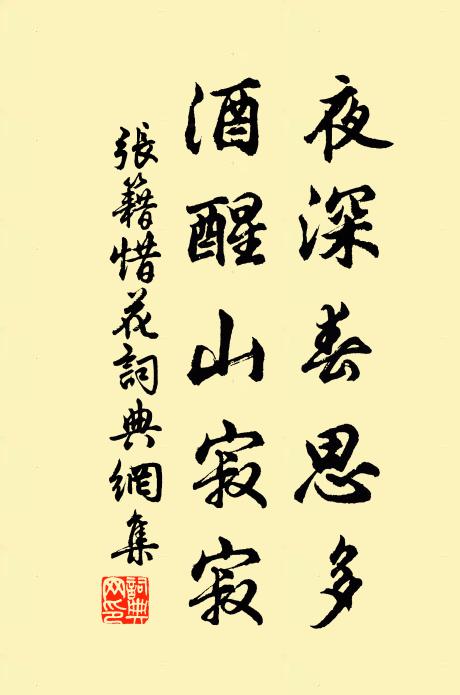 夜深春思多
酒醒山寂寂
張籍惜花詞典網集
詞典網印